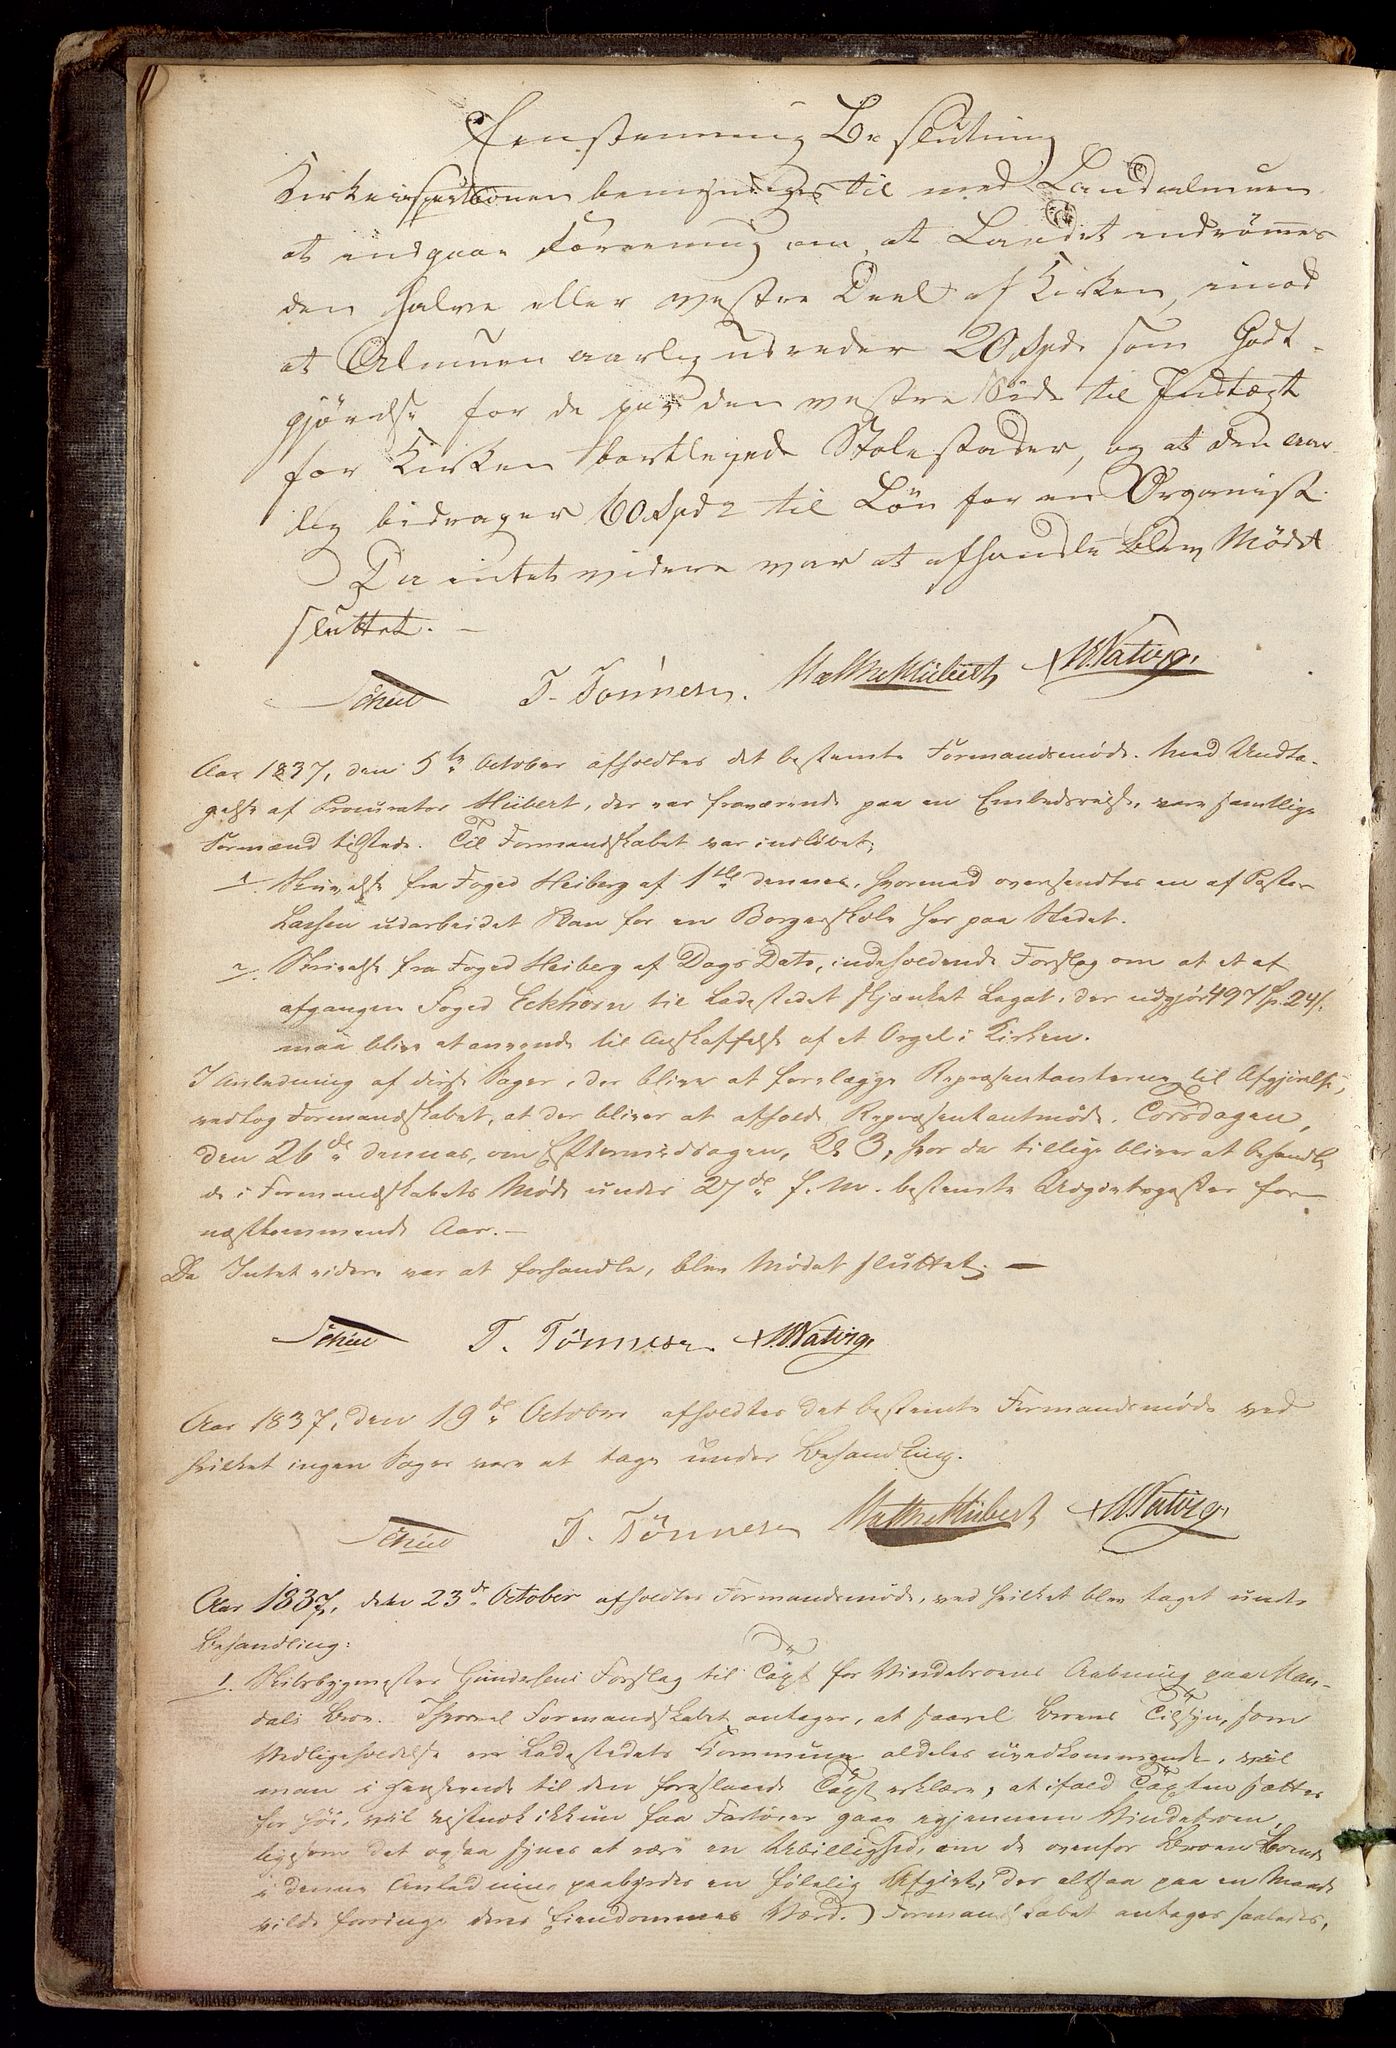 Eenstemmig Beslutning
Kirkeinspectionen bemyndiges til med Landalmuen
at indgaae Forening om, at Landet indrømmes
den halve eller vestre Deel af Kirken, imod
at Almuen aarlig udreder 20 Spd. som Godt-
gjørelse for de paa den vestre Side til Indtægt
for Kirken bortleyede Stolestader, og at den aar-
lig bidrager 60 Spd til Løn for en Organist.
Da intet videre var at afhandle blev Mødet
sluttet. —
Schiøl T. Tönnesen. Hübert Natvig.
Aar 1837, den 5te October afholdtes det bestemte Formandsmøde. Med Undta-
gelse af Procurator Hübert, der var fraværende paa en Embedsreise, vare samtlige
Formænd tilstede. Til Formandskabet var indløbet:
1. Skrivelse fra Foged Heiberg af 1ste dennes, hvormed oversendtes en af Pastor
Lassen udarbeidet Plan for en Borgerskole her paa Stedet.
2. Skrivelse fra Foged Heiberg af Dags Dato, indeholdende Forslag om at et af
afgangne Foged Eckhorn til Ladestedet skjænket Legat, der udgjør 497 Sp. 24 s.
maa blive at anvende til Anskaffelse af et Orgel i Kirken.
I Anledning af disse Sager, der bliver at forelægge Repræsentanterne til Afgjørelse,
vedtog Formandskabet, at der bliver at afholde Repræsentantmøde. Torsdagen,
den 26de dennes, om Eftermiddagen, Kl 3, hvor da tillige bliver at behandle
de i Formandskabets Møde under 27de f. M. bestemte Udgiftsposter for
næstkommende Aar. —
Da Intet videre var at forhandle, blev Mødet sluttet. —
Schiøl T. Tönnesen Natvig.
Aar 1837, den 19de October afholdtes det bestemte Formandsmøde ved
hvilket ingen Sager vare at tage under Behandling.
Schiøl T. Tönnesen Hübert Natvig.
Aar 1837, den 23de October afholdtes Formandsmøde, ved hvilket blev taget under
Behandling:
1. Skibsbygmester Gundersens Forslag til Taxt for Vindebroens Aabning paa Man-
dals Broe. Ihvorvel Formandskabet antager, at saavel Broens Tilsyn, som
Vedligeholdelse er Ladestedets Kommune aldeles uvedkommende, vil
man i Henseende til den foreslaaede Taxt erklære, at ifald Taxten sættes
for høi, vil vistnok ikkun faa Fartøier gaae igjennem Vindebroen,
ligesom det ogsaa synes at være en Ubillighed, om de ovenfor Broen Boende
i denne Anledning paabyrdes en følelig Afgivt, der altsaa paa en Maade
vilde forringe deres Eiendommes Værd. Formandskabet antager saaledes,